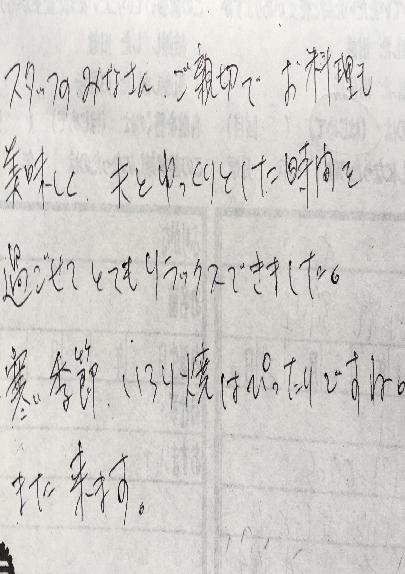 スタッフのみなさん ご親切で お料理も
美味しく、夫とゆっくりとした時間を
過ごせてとてもリラックスできました。
寒い季節、いろり焼はぴったりですね。
また来ます。